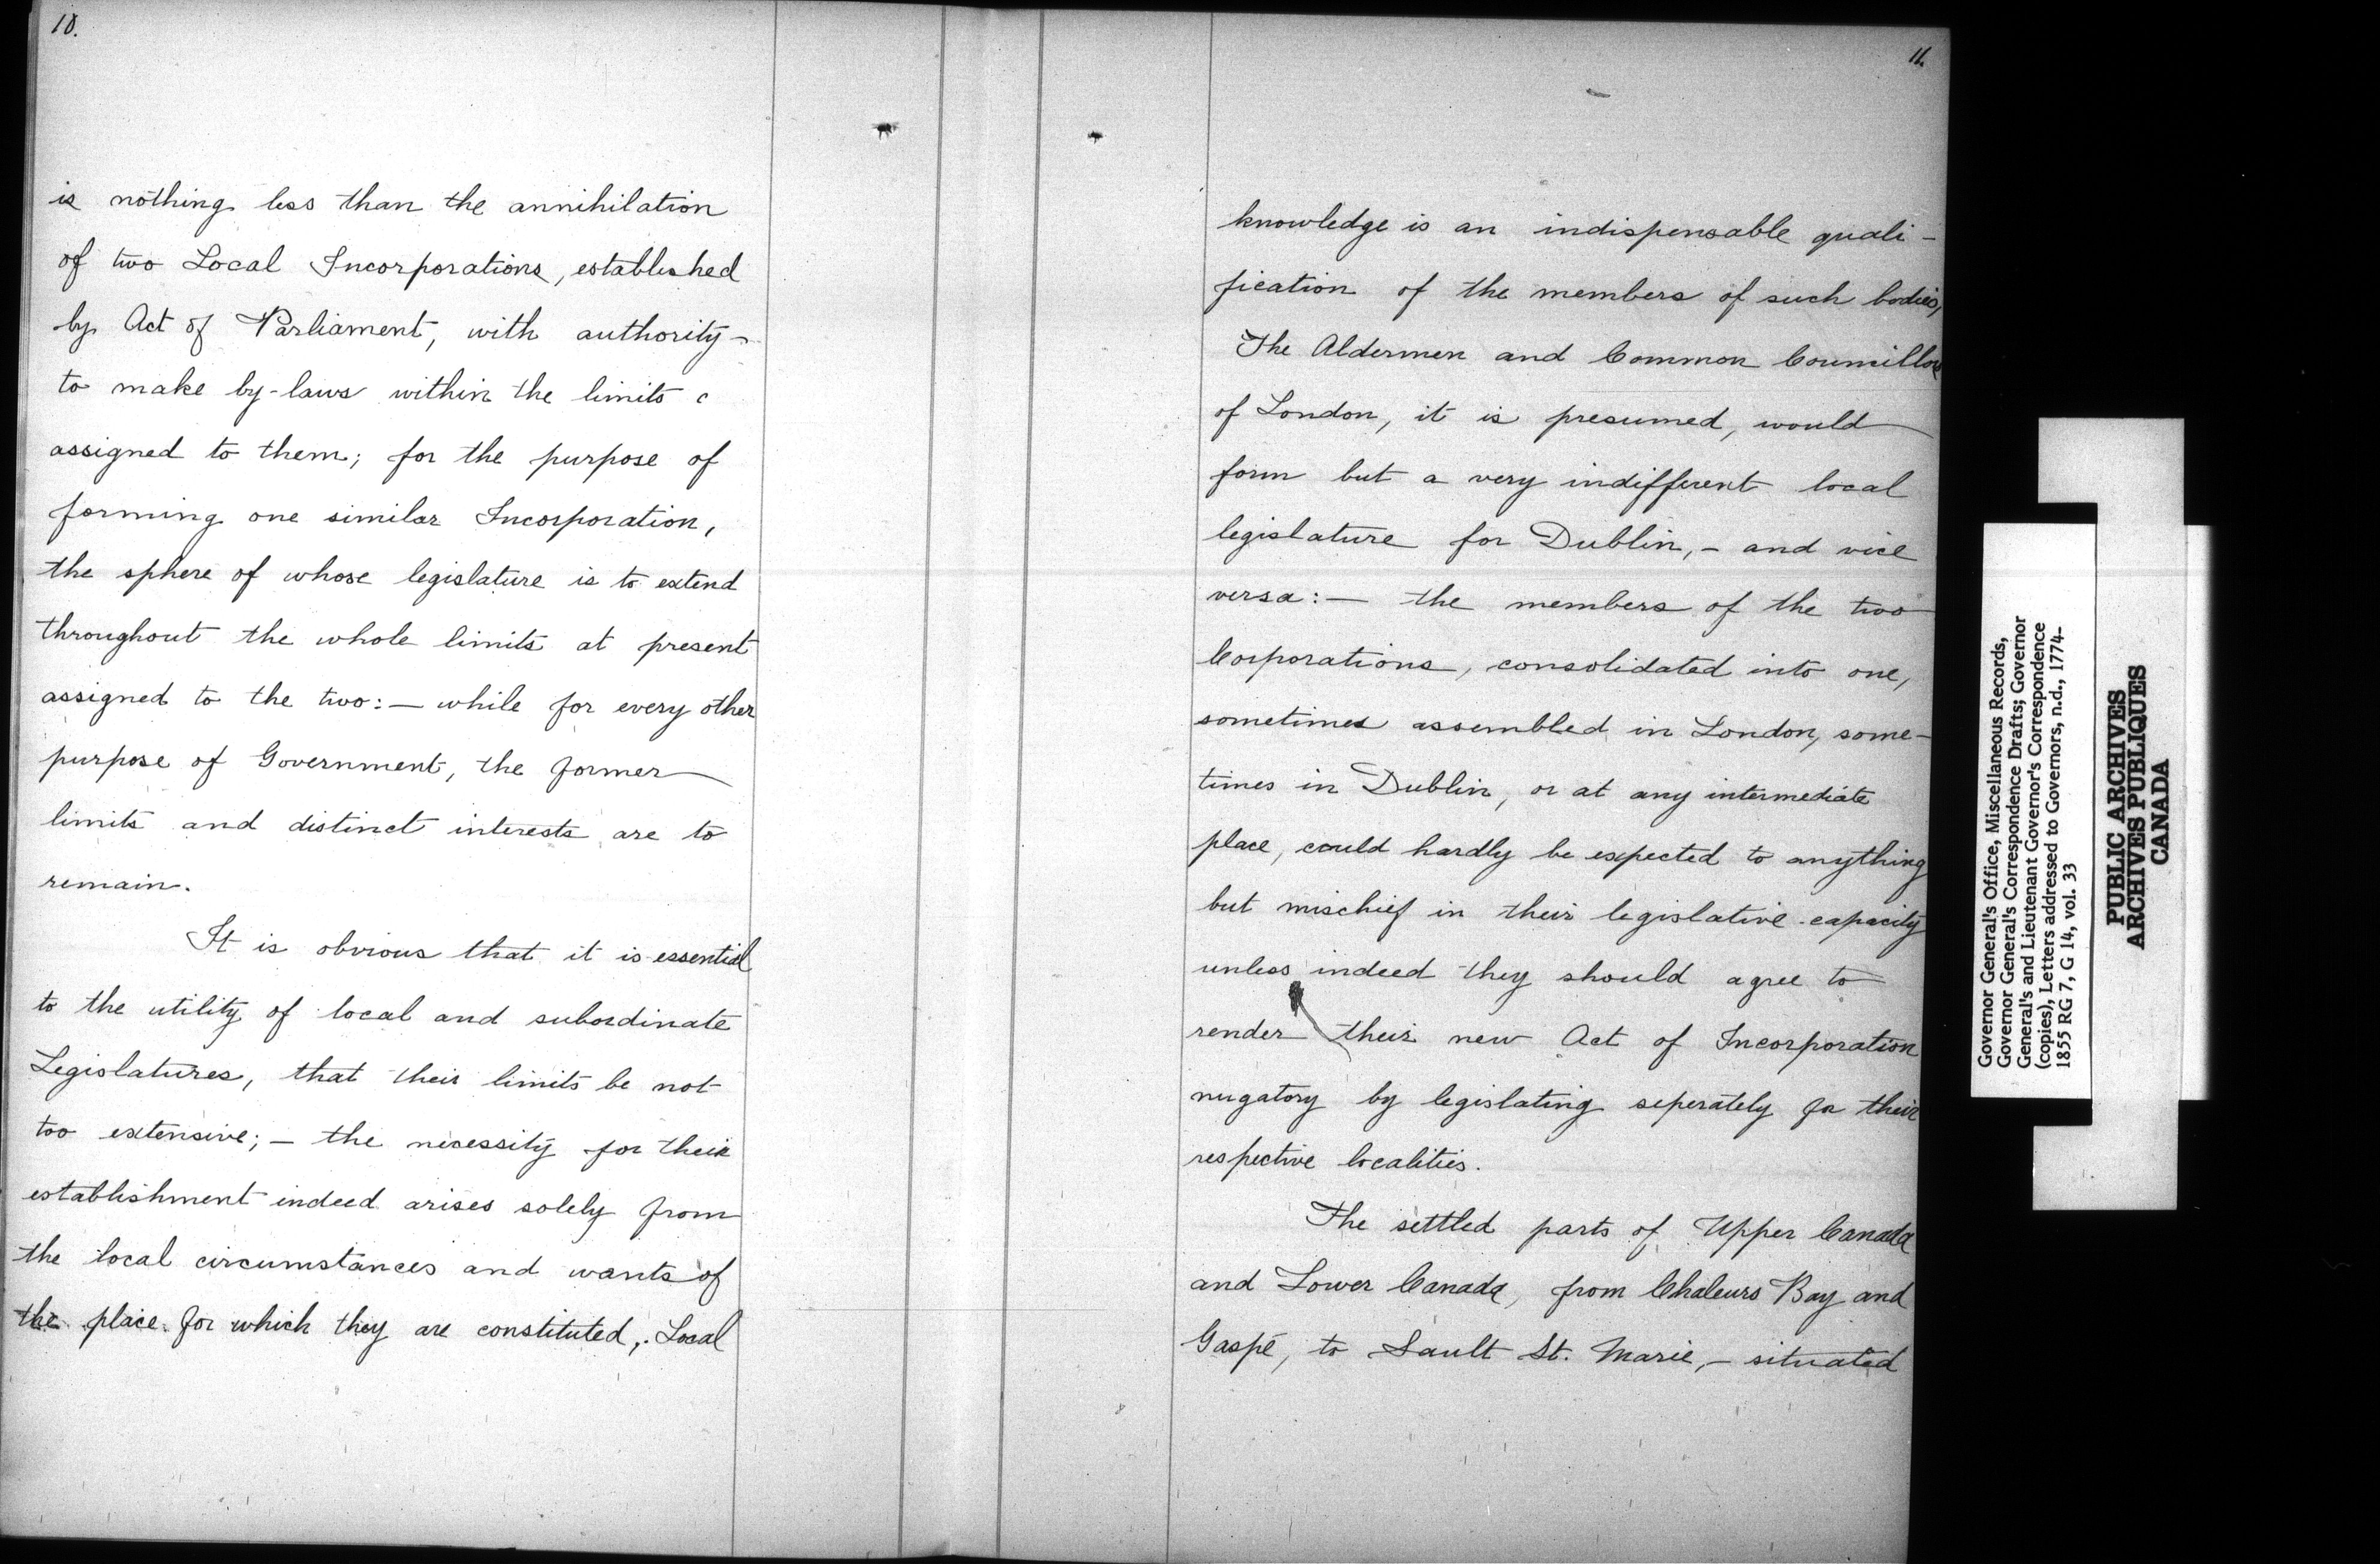 10.
is nothing less than the annihilation
of two Local Incorporations, established
by Act of Parliament, with authority -
to make by-laws within the limits
assigned to them; for the purpose of
forming one similar Incorporation,
the sphere of whose legislature is to extend
throughout the whole limits at present
assigned to the two: — while for every other
purpose of Government, the former
limits and distinct interests are to
remain.
It is obvious that it is essential
to the utility of local and subordinate
Legislatures, that their limits be not
too extensive; — the necessity for their
establishment indeed arises solely from
the local circumstances and wants of
the place for which they are constituted,. Local
11.
knowledge is an indispensable quali-
fication of the members of such bodies,
The Aldermen and Common Councillors
of London, it is presumed, would
form but a very indifferent local
legislature for Dublin, - and vice
versa: — the members of the two
Corporations, consolidated into one,
sometimes assembled in London, some-
times in Dublin, or at any intermediate
place, could hardly be expected to anything
but mischief in their legislative capacity
unless indeed they should agree to
render their new Act of Incorporation
nugatory by legislating seperately for their
respective localities.
The settled parts of Upper Canada
and Lower Canada, from Chaleurs Bay and
Gaspé, to Sault St. Marie, - situated
Governor General's Office, Miscellaneous Records,
Governor General's Correspondence Drafts; Governor
General's and Lieutenant Governor's Correspondence
(copies), Letters addressed to Governors, n.d., 1774-
1855 RG 7, G 14, vol. 33
PUBLIC ARCHIVES
ARCHIVES PUBLIQUES
CANADA